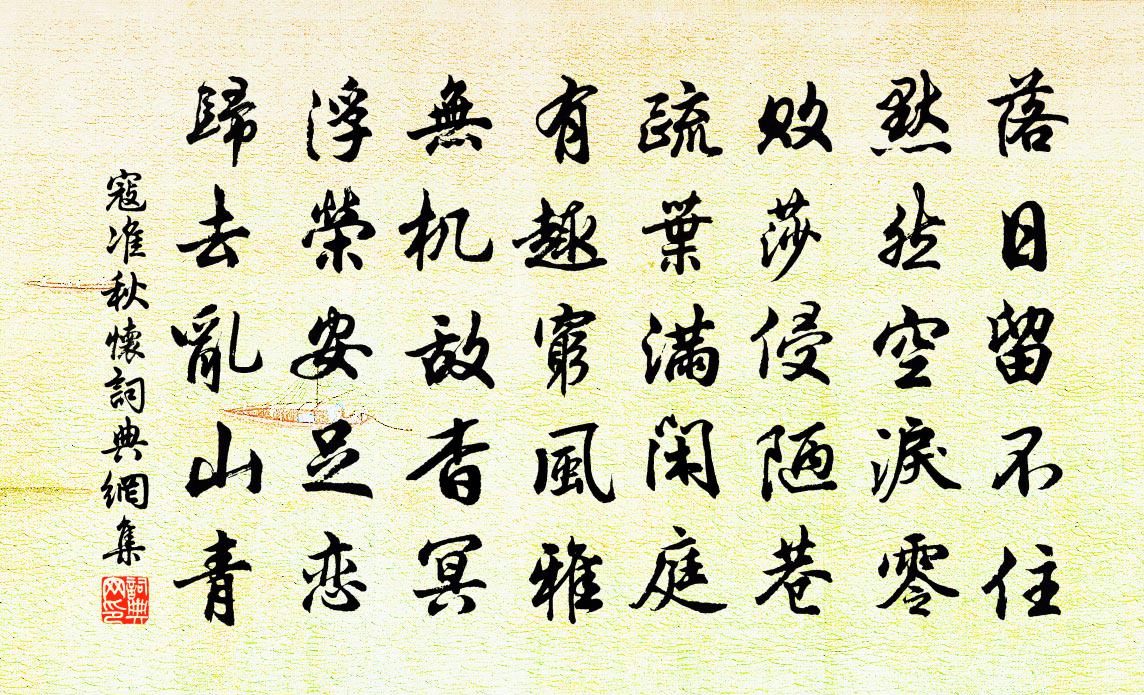 落日留不住
黙然空淚零
败莎侵陋巷
疏葉滿闲庭
有趣窮風雅
無机敌杳冥
浮榮安足恋
歸去亂山青
寇准秋懷詞典網集
詞典网印